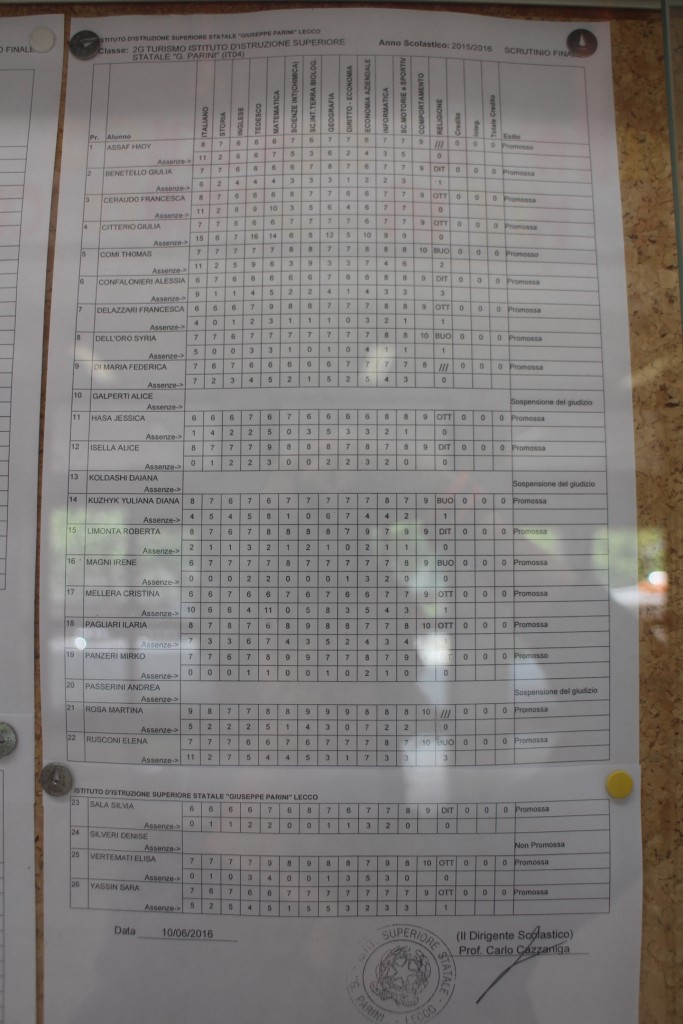 O FINALE
ISTITUTO D'ISTRUZIONE SUPERIORE STATALE "GIUSEPPE PARINI" LECCO
Classe: 2G TURISMO ISTITUTO D'ISTRUZIONE SUPERIORE STATALE "G. PARINI" (IT04) Anno Scolastico: 2015/2016 SCRUTINIO FINALE
Pr. Alunno ITALIANO STORIA INGLESE TEDESCO MATEMATICA SCIENZE INT(CHIMICA) SC.INT.TERRA BIOLOG. GEOGRAFIA DIRITTO - ECONOMIA ECONOMIA AZIENDALE INFORMATICA SC.MOTORIE e SPORTIV COMPORTAMENTO RELIGIONE Credito Integ. Totale Credito Esito
1 ASSAF HADY 9 /// 0 0 0 Promosso
Assenze-> 11 2 6 6 7 5 3 6 2 4 3 5 0
2 BENETELLO GIULIA 9 DIT 0 0 0 Promossa
Assenze-> 6 2 4 4 4 3 3 3 1 2 2 3 1
3 CERAUDO FRANCESCA 9 OTT 0 0 0 Promossa
Assenze-> 11 2 8 9 10 3 5 6 4 6 7 9 0
4 CITTERIO GIULIA 9 OTT 0 0 0 Promossa
Assenze-> 15 6 7 16 14 6 8 12 5 10 9 9 0
5 COMI THOMAS 7 7 7 7 7 8 8 7 7 8 8 8 10 BUO 0 0 0 Promosso
Assenze-> 11 2 5 9 8 3 9 3 3 7 4 6 2
6 CONFALONIERI ALESSIA 6 7 6 6 6 6 6 7 6 6 8 8 9 DIT 0 0 0 Promossa
Assenze-> 9 1 1 4 5 2 2 4 1 4 3 3 3
7 DELAZZARI FRANCESCA 6 6 6 7 9 8 8 7 7 7 8 8 9 OTT 0 0 0 Promossa
Assenze-> 4 0 1 2 3 1 1 1 0 3 2 1 1
8 DELL'ORO SYRIA 7 7 6 7 7 7 7 7 7 7 8 8 10 BUO 0 0 0 Promossa
Assenze-> 5 0 0 3 3 1 0 1 0 4 1 1 1
9 DI MARIA FEDERICA 7 6 7 6 6 6 6 6 7 7 7 7 8 /// 0 0 0 Promossa
Assenze-> 7 2 3 4 5 2 1 5 2 5 4 3 0
10 GALPERTI ALICE Sospensione del giudizio
Assenze->
11 HASA JESSICA 6 6 6 7 6 7 6 6 6 6 8 8 9 OTT 0 0 0 Promossa
Assenze-> 1 4 2 2 5 0 3 5 3 3 2 1 0
12 ISELLA ALICE 8 7 7 7 9 8 8 8 7 8 7 8 9 DIT 0 0 0 Promossa
Assenze-> 0 1 2 2 3 0 0 2 2 3 2 0 0
13 KOLDASHI DAIANA Sospensione del giudizio
Assenze->
14 KUZHYK YULIANA DIANA 8 7 6 7 6 7 7 7 7 7 8 7 9 BUO 0 0 0 Promossa
Assenze-> 4 5 4 5 8 1 0 6 7 4 4 2 1
15 LIMONTA ROBERTA 8 7 6 7 8 8 8 8 7 9 7 9 9 DIT 0 0 0 Promossa
Assenze-> 2 1 1 3 2 1 2 1 0 2 1 1 0
16 MAGNI IRENE 6 7 7 7 8 7 7 7 7 7 7 8 9 BUO 0 0 0 Promossa
Assenze-> 0 0 0 2 2 0 0 0 1 3 2 0 0
17 MELLERA CRISTINA 6 6 7 6 6 7 6 7 6 6 7 7 9 OTT 0 0 0 Promossa
Assenze-> 10 6 6 4 11 0 5 8 3 5 4 3 1
18 PAGLIARI ILARIA 8 7 8 7 6 8 9 8 8 7 7 8 10 OTT 0 0 0 Promossa
Assenze-> 7 3 3 6 7 4 3 5 2 4 3 4
19 PANZERI MIRKO 7 7 6 7 8 9 9 7 7 8 7 9 0 0 0 Promosso
Assenze-> 0 0 0 1 1 0 0 1 0 2 1 0 0
20 PASSERINI ANDREA Sospensione del giudizio
Assenze->
21 ROSA MARTINA 9 8 7 7 8 8 9 9 9 8 8 8 10 /// 0 0 0 Promossa
Assenze-> 5 2 2 2 5 1 4 3 0 7 2 2 0
22 RUSCONI ELENA 7 7 7 6 6 7 6 7 7 7 8 7 10 BUO 0 0 0 Promossa
Assenze-> 11 2 7 5 4 4 5 3 1 7 3 3 3
ISTITUTO D'ISTRUZIONE SUPERIORE STATALE "GIUSEPPE PARINI" LECCO
23 SALA SILVIA 6 6 6 6 7 6 8 7 6 7 7 8 9 DIT 0 0 0 Promossa
Assenze-> 0 1 1 2 2 0 0 1 1 3 2 0 0
24 SILVERI DENISE Non Promossa
Assenze->
25 VERTEMATI ELISA 7 7 7 7 9 8 9 8 8 7 9 8 10 OTT 0 0 0 Promossa
Assenze-> 0 1 0 3 4 0 0 1 3 5 3 0 0
26 YASSIN SARA 7 6 7 6 6 7 7 7 7 7 7 7 9 OTT 0 0 0 Promossa
Assenze-> 5 2 5 4 5 1 5 5 3 2 3 3 1
Data 10/06/2016
(Il Dirigente Scolastico)
Prof. Carlo Cazzaniga
SUPERIORE STATALE "G. PARINI" - LECCO